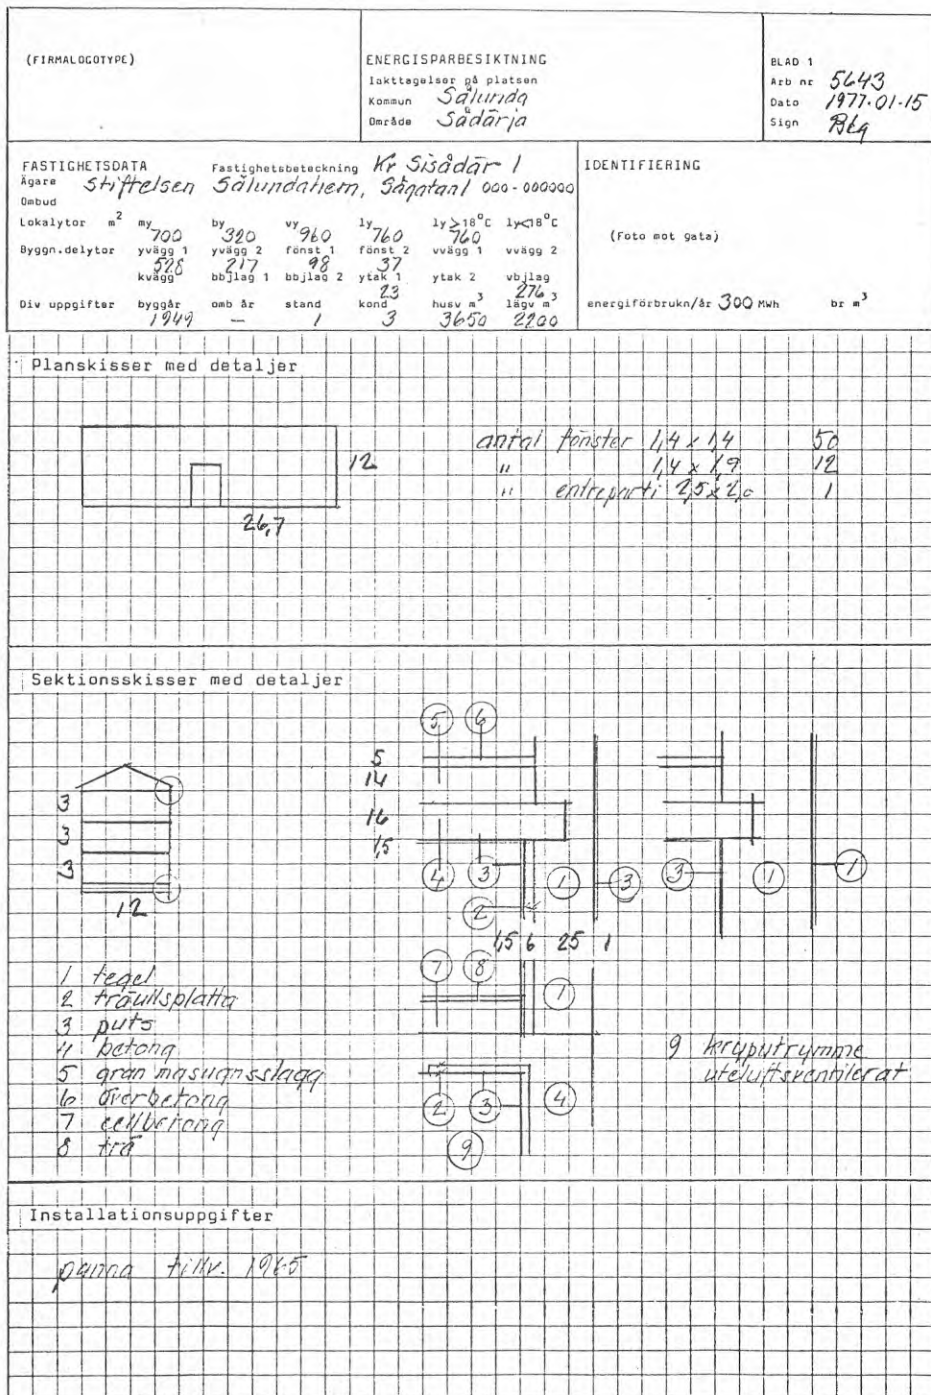 (FIRMALOGOTYPE)
ENERGISPARBESIKTNING
Iakttagelser på platsen
Kommun Sålunda
Område Sådärja
BLAD 1
Arb nr 5643
Dato 1977-01-15
Sign Bkg
FASTIGHETSDATA Fastighetsbeteckning Kv Sisådär 1
Ägare Stiftelsen Sålundahem, Sågatan 1 000-000000
Ombud
Lokalytor m² my by vy ly ly≥18°C ly<18°C
700 320 960 760 760
Byggn.delytor yvägg 1 yvägg 2 fönst 1 fönst 2 vvägg 1 vvägg 2
528 217 98 37
kvägg bbjlag 1 bbjlag 2 ytak 1 ytak 2 vbjlag
23 276
Div uppgifter byggår omb år stand kond husv m³ lägv m³
1949 — 1 3 3650 2200
IDENTIFIERING
(Foto mot gata)
energiförbrukn/år 300 MWh br m³
Planskisser med detaljer
antal fönster 1,4 x 1,4 50
" 1,4 x 1,9 12
" entréparti 2,5 x 2,0 1
12
26,7
Sektionsskisser med detaljer
5 6
5
14
16
1,5
3
3
3
12
4 3 1 3 3 1 1
2
1,5 6 25 1
7 8
1
2 3 4
9
1 tegel
2 träullsplatta
3 puts
4 betong
5 gran masugnsslagg
6 överbetong
7 cellbetong
8 trä
9 kryputrymme
uteluftsventilerat
Installationsuppgifter
panna tillv. 1965